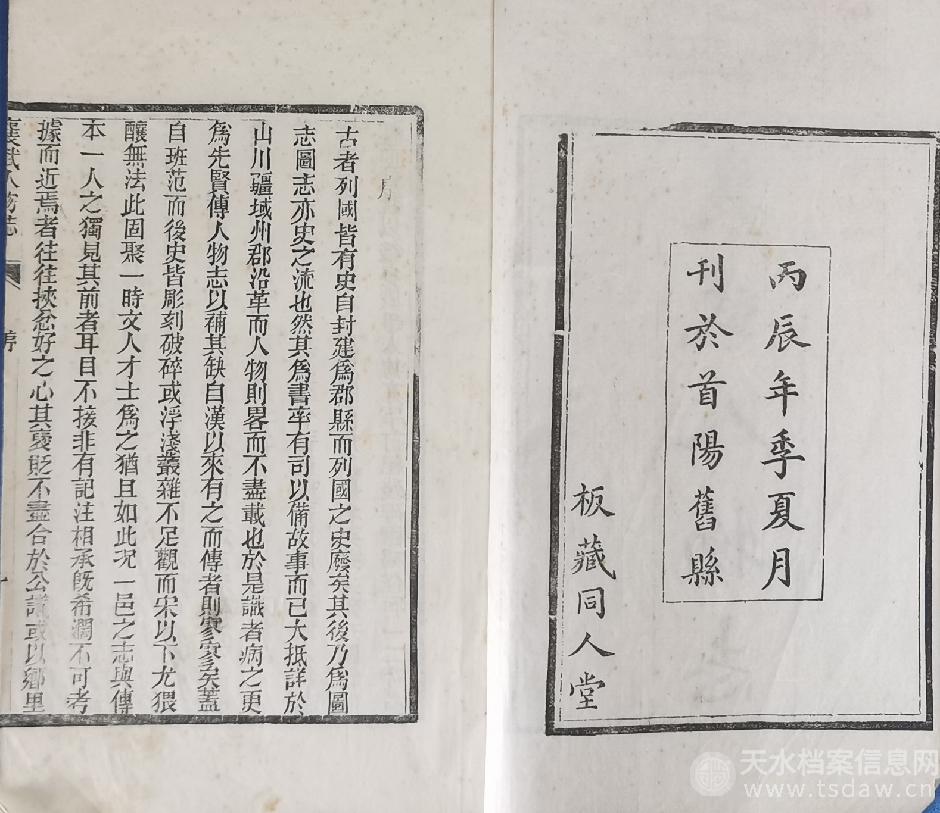 丙辰年季夏月
刊於首陽舊縣
板藏同人堂
序
古者列國皆有史自封建爲郡縣而列國之史廢矣其後乃爲圖
志圖志亦史之流也然其爲書率有司以備故事而已大抵詳於
山川疆域州郡沿革而人物則畧而不盡載也於是識者病之更
爲先賢傳人物志以補其缺自漢以來有之而傳者則寥寥矣蓋
自班范而後史皆彫刻破碎或浮淺叢雜不足觀而宋以下尤猥
釀無法此固聚一時文人才士爲之猶且如此况一邑之志與傳
本一人之獨見其前者耳目不接非有記注相承旣希濶不可考
據而近焉者往往挾忿好之心其褒貶不盡合於公議或以鄉里
襄武人物志
序
一
天水档案信息网
www.tsdaw.cn